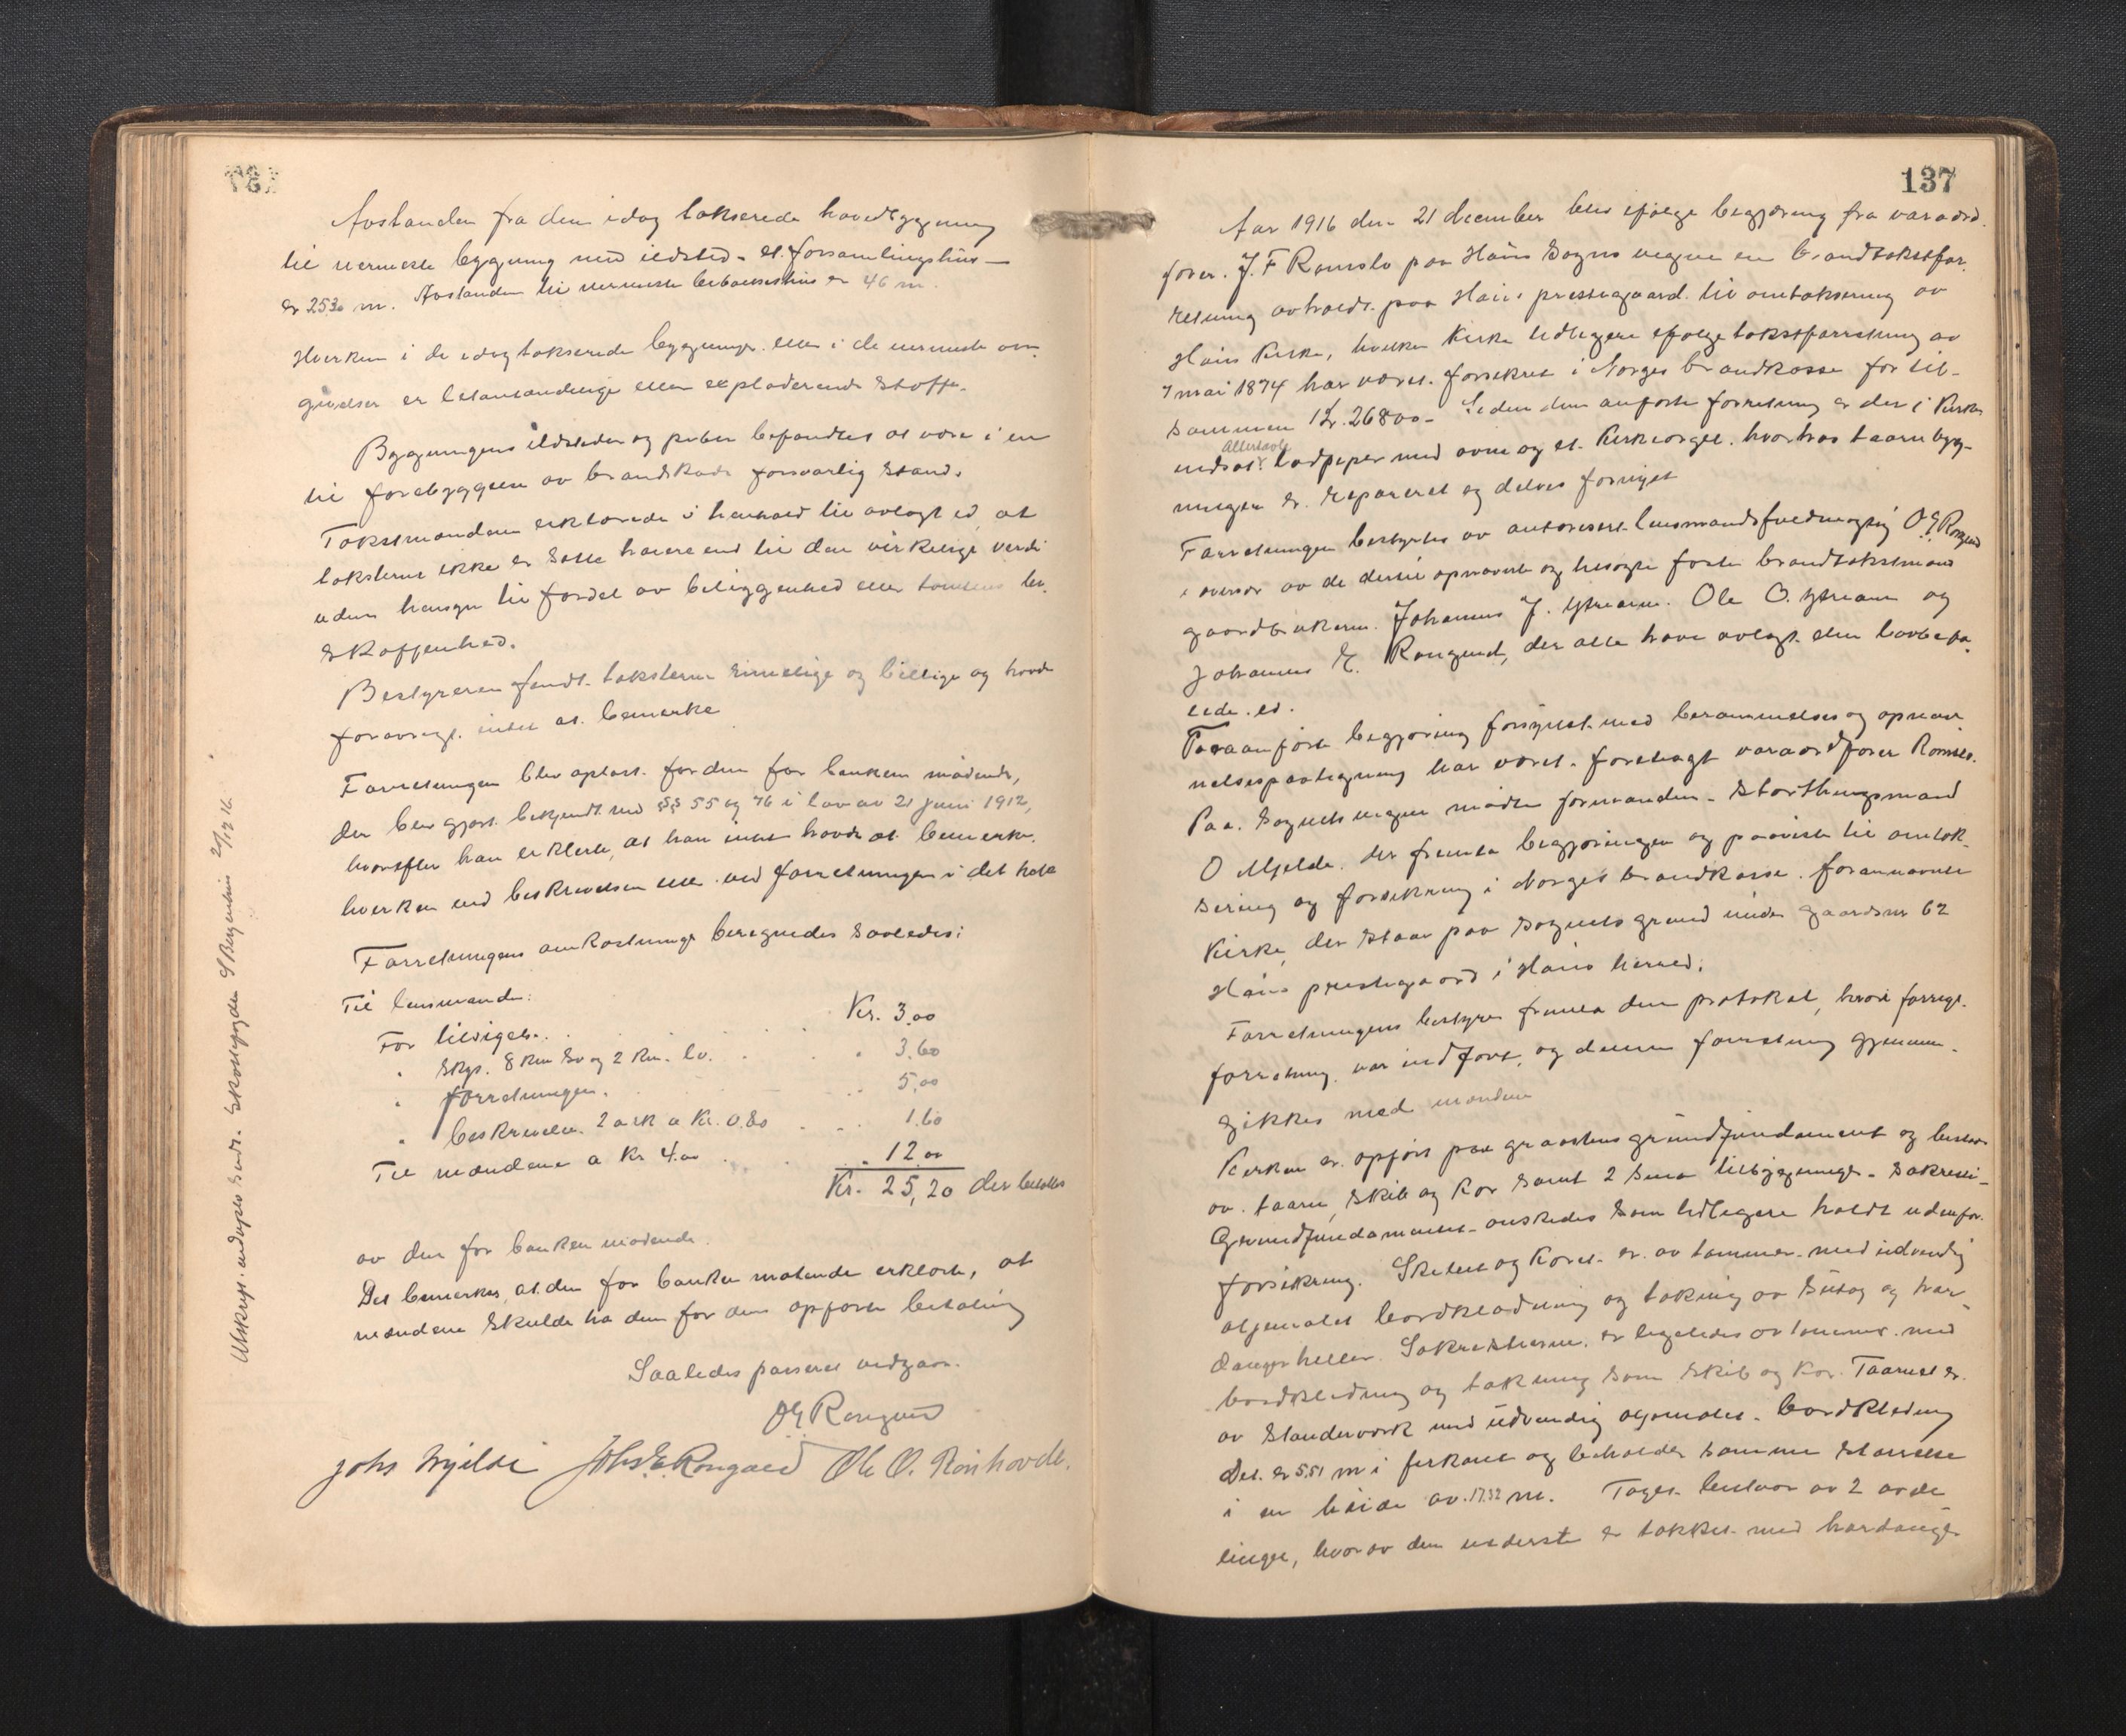 Avstanden fra den idag takserede hovedbygning
til nermeste bygning med ildsted - et forsamlingshus -
er 25.30 m. Avstanden til nermeste beboelseshus er 46 m.
Hverken i de idag takserede bygninger eller i de nermeste om-
givelser er letantændelige eller exploderende stoffe.
Bygningens ildsteder og piber befandtes at være i en
til forebyggelse av brandskade forsvarlig stand.
Takstmændene erklærede i henhold til avlagt ed, at
taksterne ikke er satte høiere end til den virkelige verdi
uden hensyn til fordel av beliggenhed eller tomtens be-
skaffenhed.
Bestyreren fandt taksterne rimelige og billige og havde
forøvrigt intet at bemerke
Forretningen blev oplæst for den for banken mødende,
der blev gjort bekjendt med §§ 55 og 76 i lov av 21 juni 1912,
hvorefter han erklærte, at han intet havde at bemerke
hverken ved beskrivelsen eller ved forretningen i det hele
Forretningens omkostninger beregnedes saaledes:
Til lensmanden:
For tilsigelse . . Kr. 3.00
" skys. 8 km sv og 2 km. lv. . . 3.60
" forretningen. . . 5.00
" beskrivelse 2 ark a Kr. 0.80 . . 1.60
Til mændene a Kr 4.00 . . 12.00
Kr. 25,20 der betales
av den for banken mødende.
Det bemerkes, at den for banken møtende erklærte, at
mændene skulde ha den for dem opførte betaling
Saaledes passeret vedgaar.
OE Rongved
Johs Mjelde Johs E. Rongved Ole O. Rønhovde.
Utskrift indsapes Sødr. Skorsfogder S/Bergenhus 27/12 16.
137
Aar 1916 den 21 december blev ifølge begjæring fra varaord-
fører J. F Romslo paa Haus Sogns vegne en brandtakstfor-
retning avholdt paa Haus prestegaard til omtaksering av
Haus Kirke, hvilken kirke tidligere ifølge takstforretning av
7 mai 1874 har været forsikret i Norges brandkasse for til-
sammen Kr. 26800.- Siden den anførte forretning er der i kirken
indsat Altertavle lodpiper med ovne og et Kirkeorgel. hvorhos taarnbyg-
ningen er repareret og delvis fornyet
Forretningen bestyrtes av autoriseret lensmandsfuldmægtig OE Rongved
i overvær av de dertil opnævnte og besøgte faste brandtakstmænd
gaardbrukerne Johannes J. Ytrearne. Ole O. Ytrearne og
Johannes E. Rongved, der alle have avlagt den lovbefa-
lede ed.
Foraanførte begjæring forsynet med berammelses og opnæv-
nelsespaategning har været foretagt varaordfører Romslo.
Paa sognets vegne mødte formanden - storthingsmand
O Mjelde. der fremla begjæringen og paaviste til omtak-
sering og forsikring i Norges brandkasse. forannævnte
Kirke, der staar paa sognets grund under gaardsnr 62
Haus prestegaard i Haus herred.
Forretningens bestyrer fremla den protokol, hvori forrige
forretning var indført, og denne forretning gjennem-
gikkes med mændene
Kirken er opført paa graastens grundfundament og bestaar
av taarn, skib og kor samt 2 smaa tilbygninger - sakresti-
Grundfundamentet ønskedes som tidligere holdt udenfor
forsikring. Skibet og koret er av tømmer med udvendig
oljemalet bordklædning og tækning av sutag og har-
dangerheller. Sakrestierne er ligeledes av tømmer med
bordklædning og tækning som skib og kor. Taarnet er
av standerværk med udvendig oljemalet bordklædning
Det er 5.51 m i firkant og beholder samme størrelse
i en høide av 17.32 m. Taget bestaar av 2 avde-
linger, hvorav den underste er tækket med hardanger